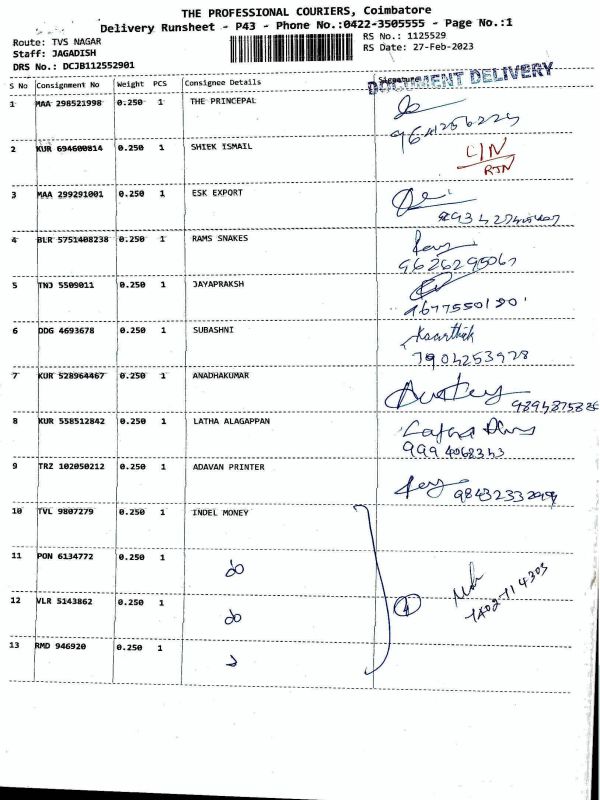 THE PROFESSIONAL COURIERS, Coimbatore
Delivery Runsheet - P43 - Phone No.:0422-3505555 - Page No.:1
Route: TVS NAGAR
Staff: JAGADISH
DRS No.: DCJB112552901
RS No.: 1125529
RS Date: 27-Feb-2023
S No Consignment No Weight PCS Consignee Details Signature
DOCUMENT DELIVERY
1 MAA 298521998 0.250 1 THE PRINCEPAL
2 KUR 694600814 0.250 1 SHIEK ISMAIL
L/N
RTN
3 MAA 299291001 0.250 1 ESK EXPORT
4 BLR 5751408238 0.250 1 RAMS SNAKES
5 TNJ 5509011 0.250 1 JAYAPRAKSH
6 DDG 4693678 0.250 1 SUBASHNI
Kaarthik
7904253928
7 KUR 528964467 0.250 1 ANADHAKUMAR
8 KUR 558512842 0.250 1 LATHA ALAGAPPAN
9994068343
9 TRZ 102050212 0.250 1 ADAVAN PRINTER
10 TVL 9807279 0.250 1 INDEL MONEY
11 PON 6134772 0.250 1
do
12 VLR 5143862 0.250 1
do
4
13 RMD 946920 0.250 1